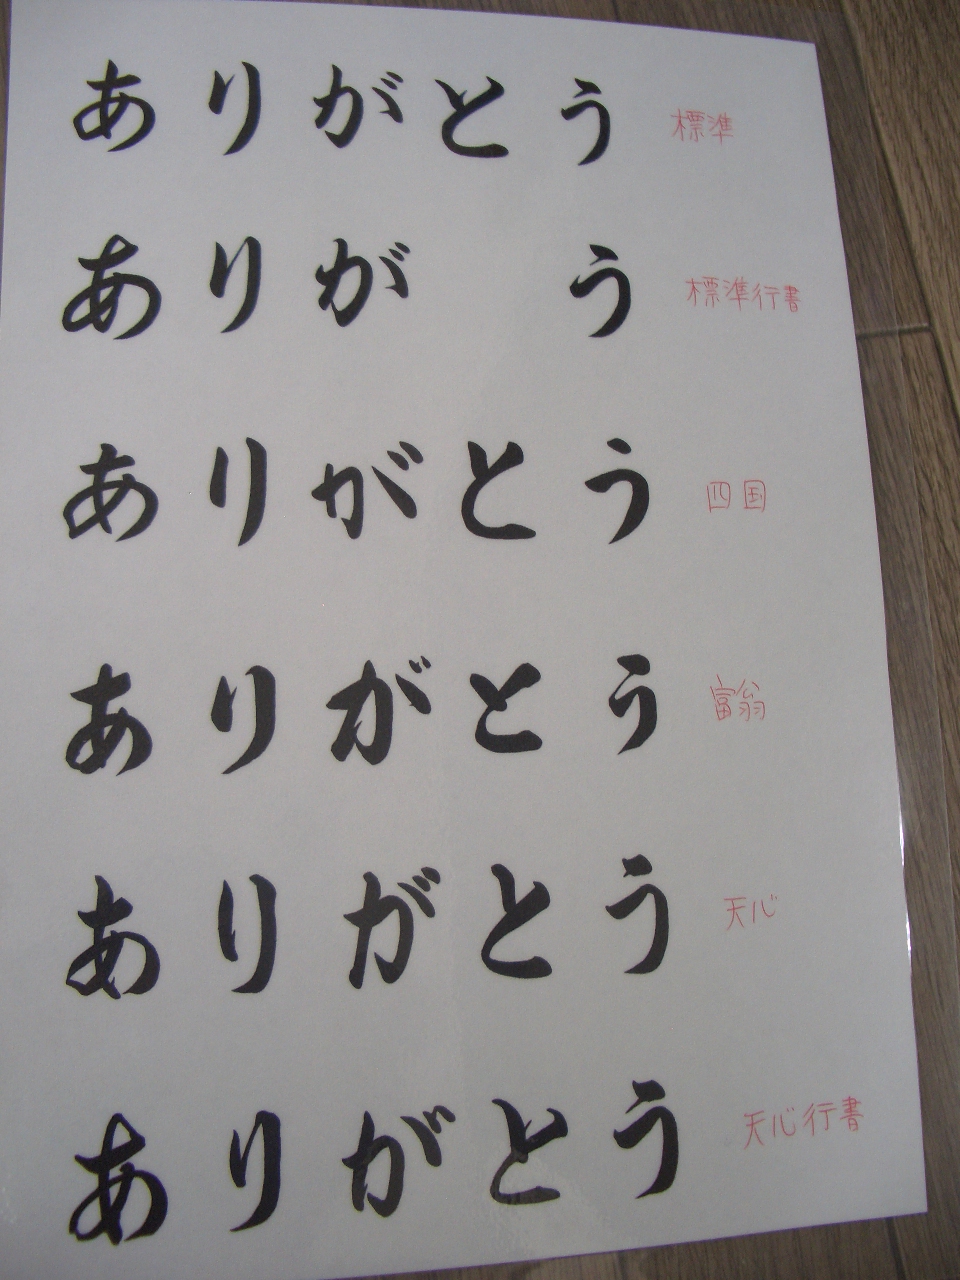 ありがとう 標準
ありが う 標準行書
ありがとう 四国
ありがとう 富翁
ありがとう 天心
ありがとう 天心行書